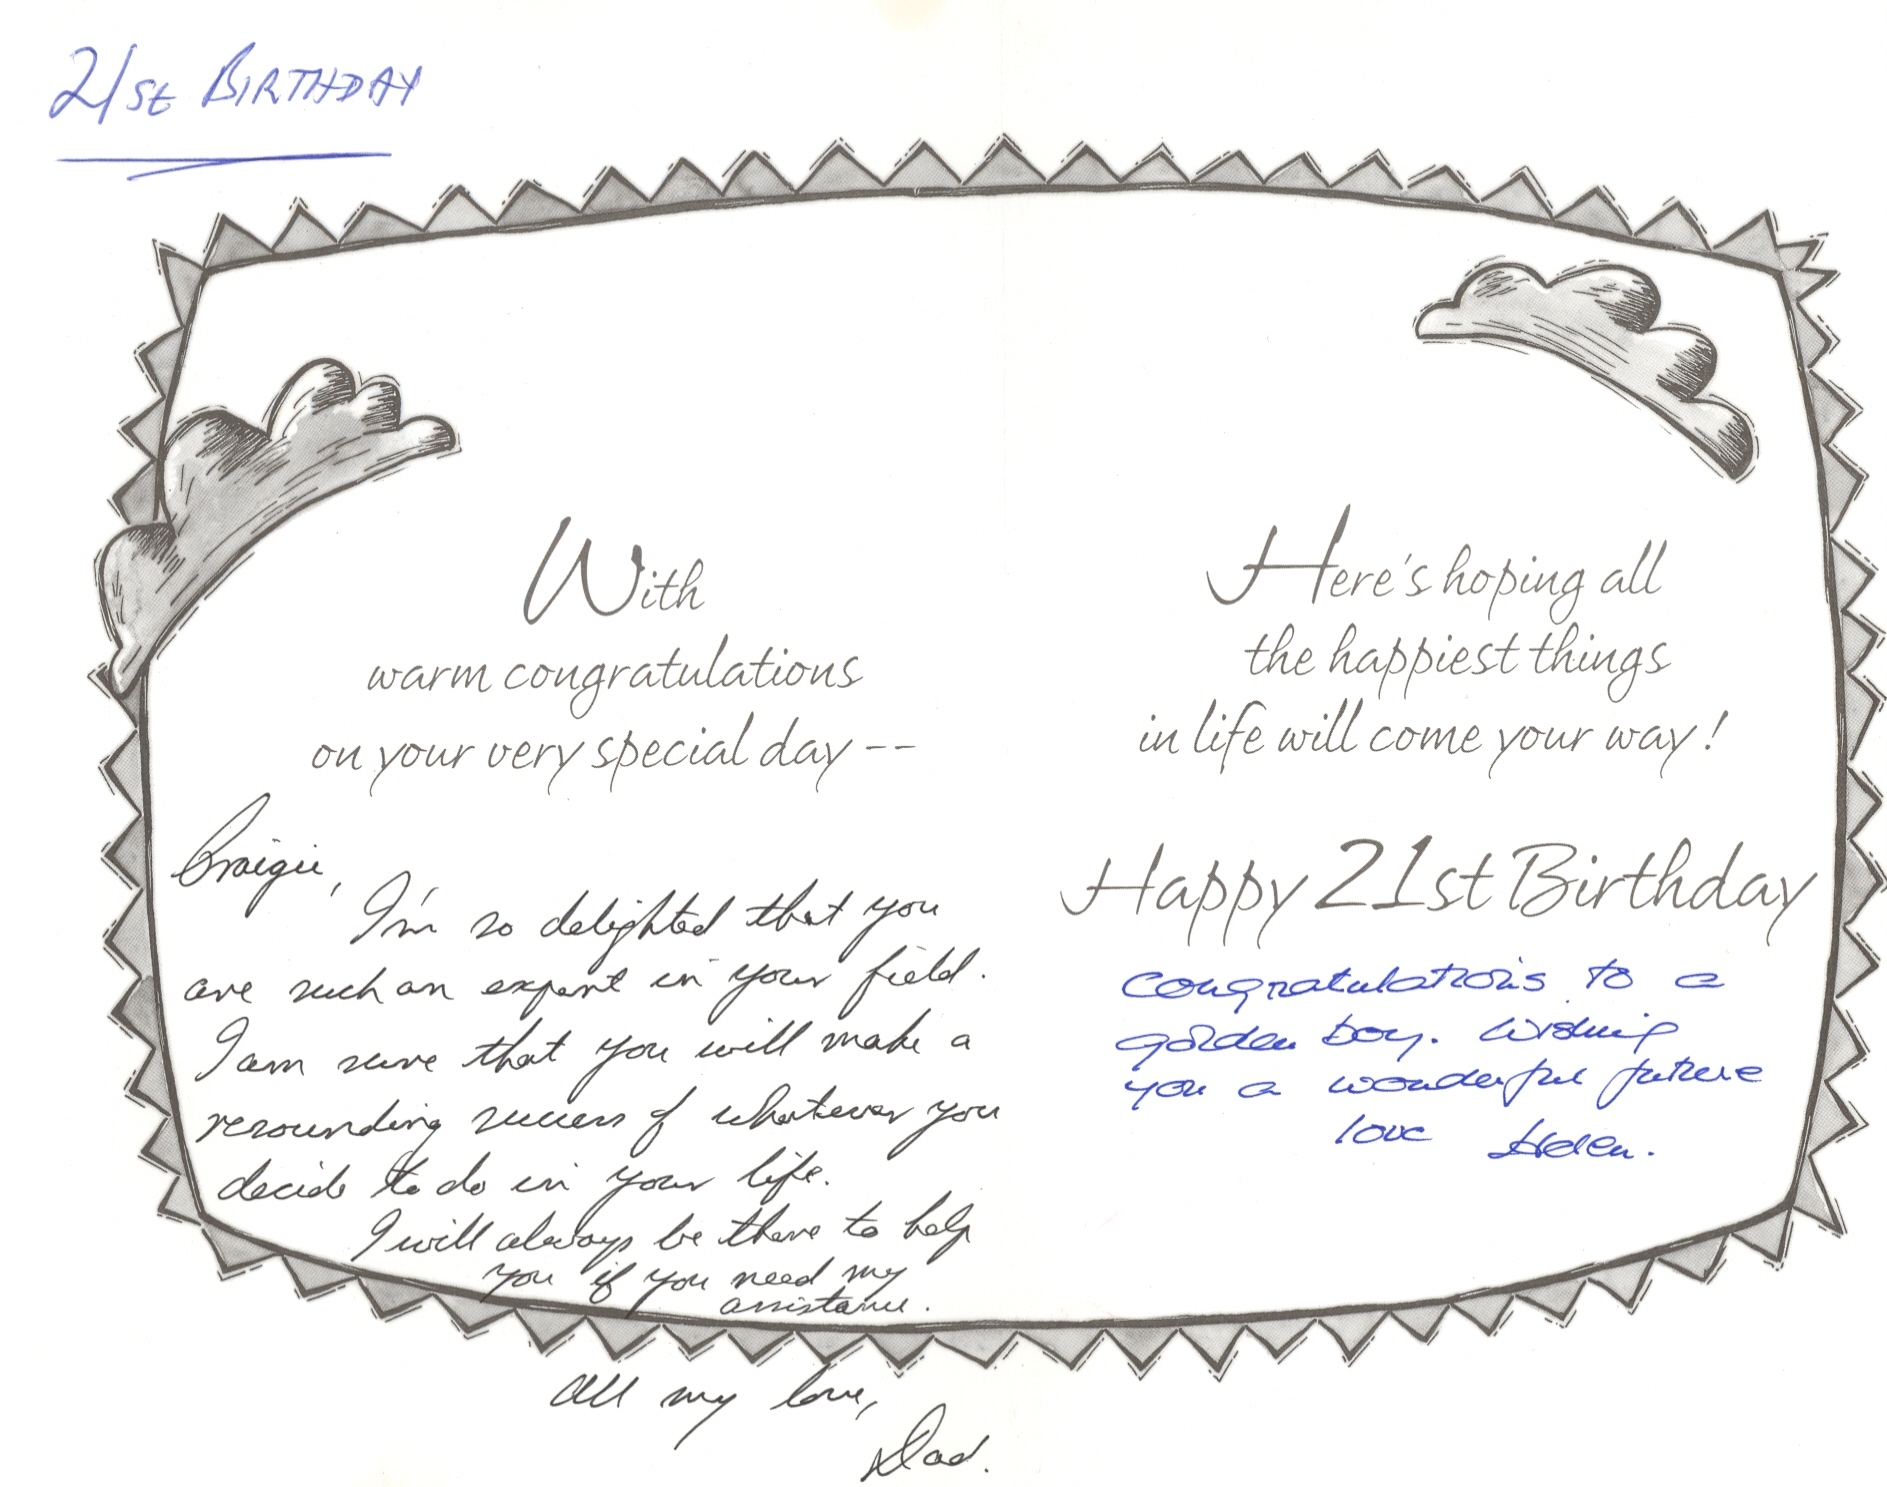 21st BIRTHDAY
With
warm congratulations
on your very special day --
Craigie,
I'm so delighted that you
are such an expert in your field.
I am sure that you will make a
resounding success of whatever you
decide to do in your life.
I will always be there to help
you if you need my
assistance.
All my love,
Dad.
Here's hoping all
the happiest things
in life will come your way!
Happy 21st Birthday
Congratulations to a
golden boy. Wishing
you a wonderful future
love Helen.